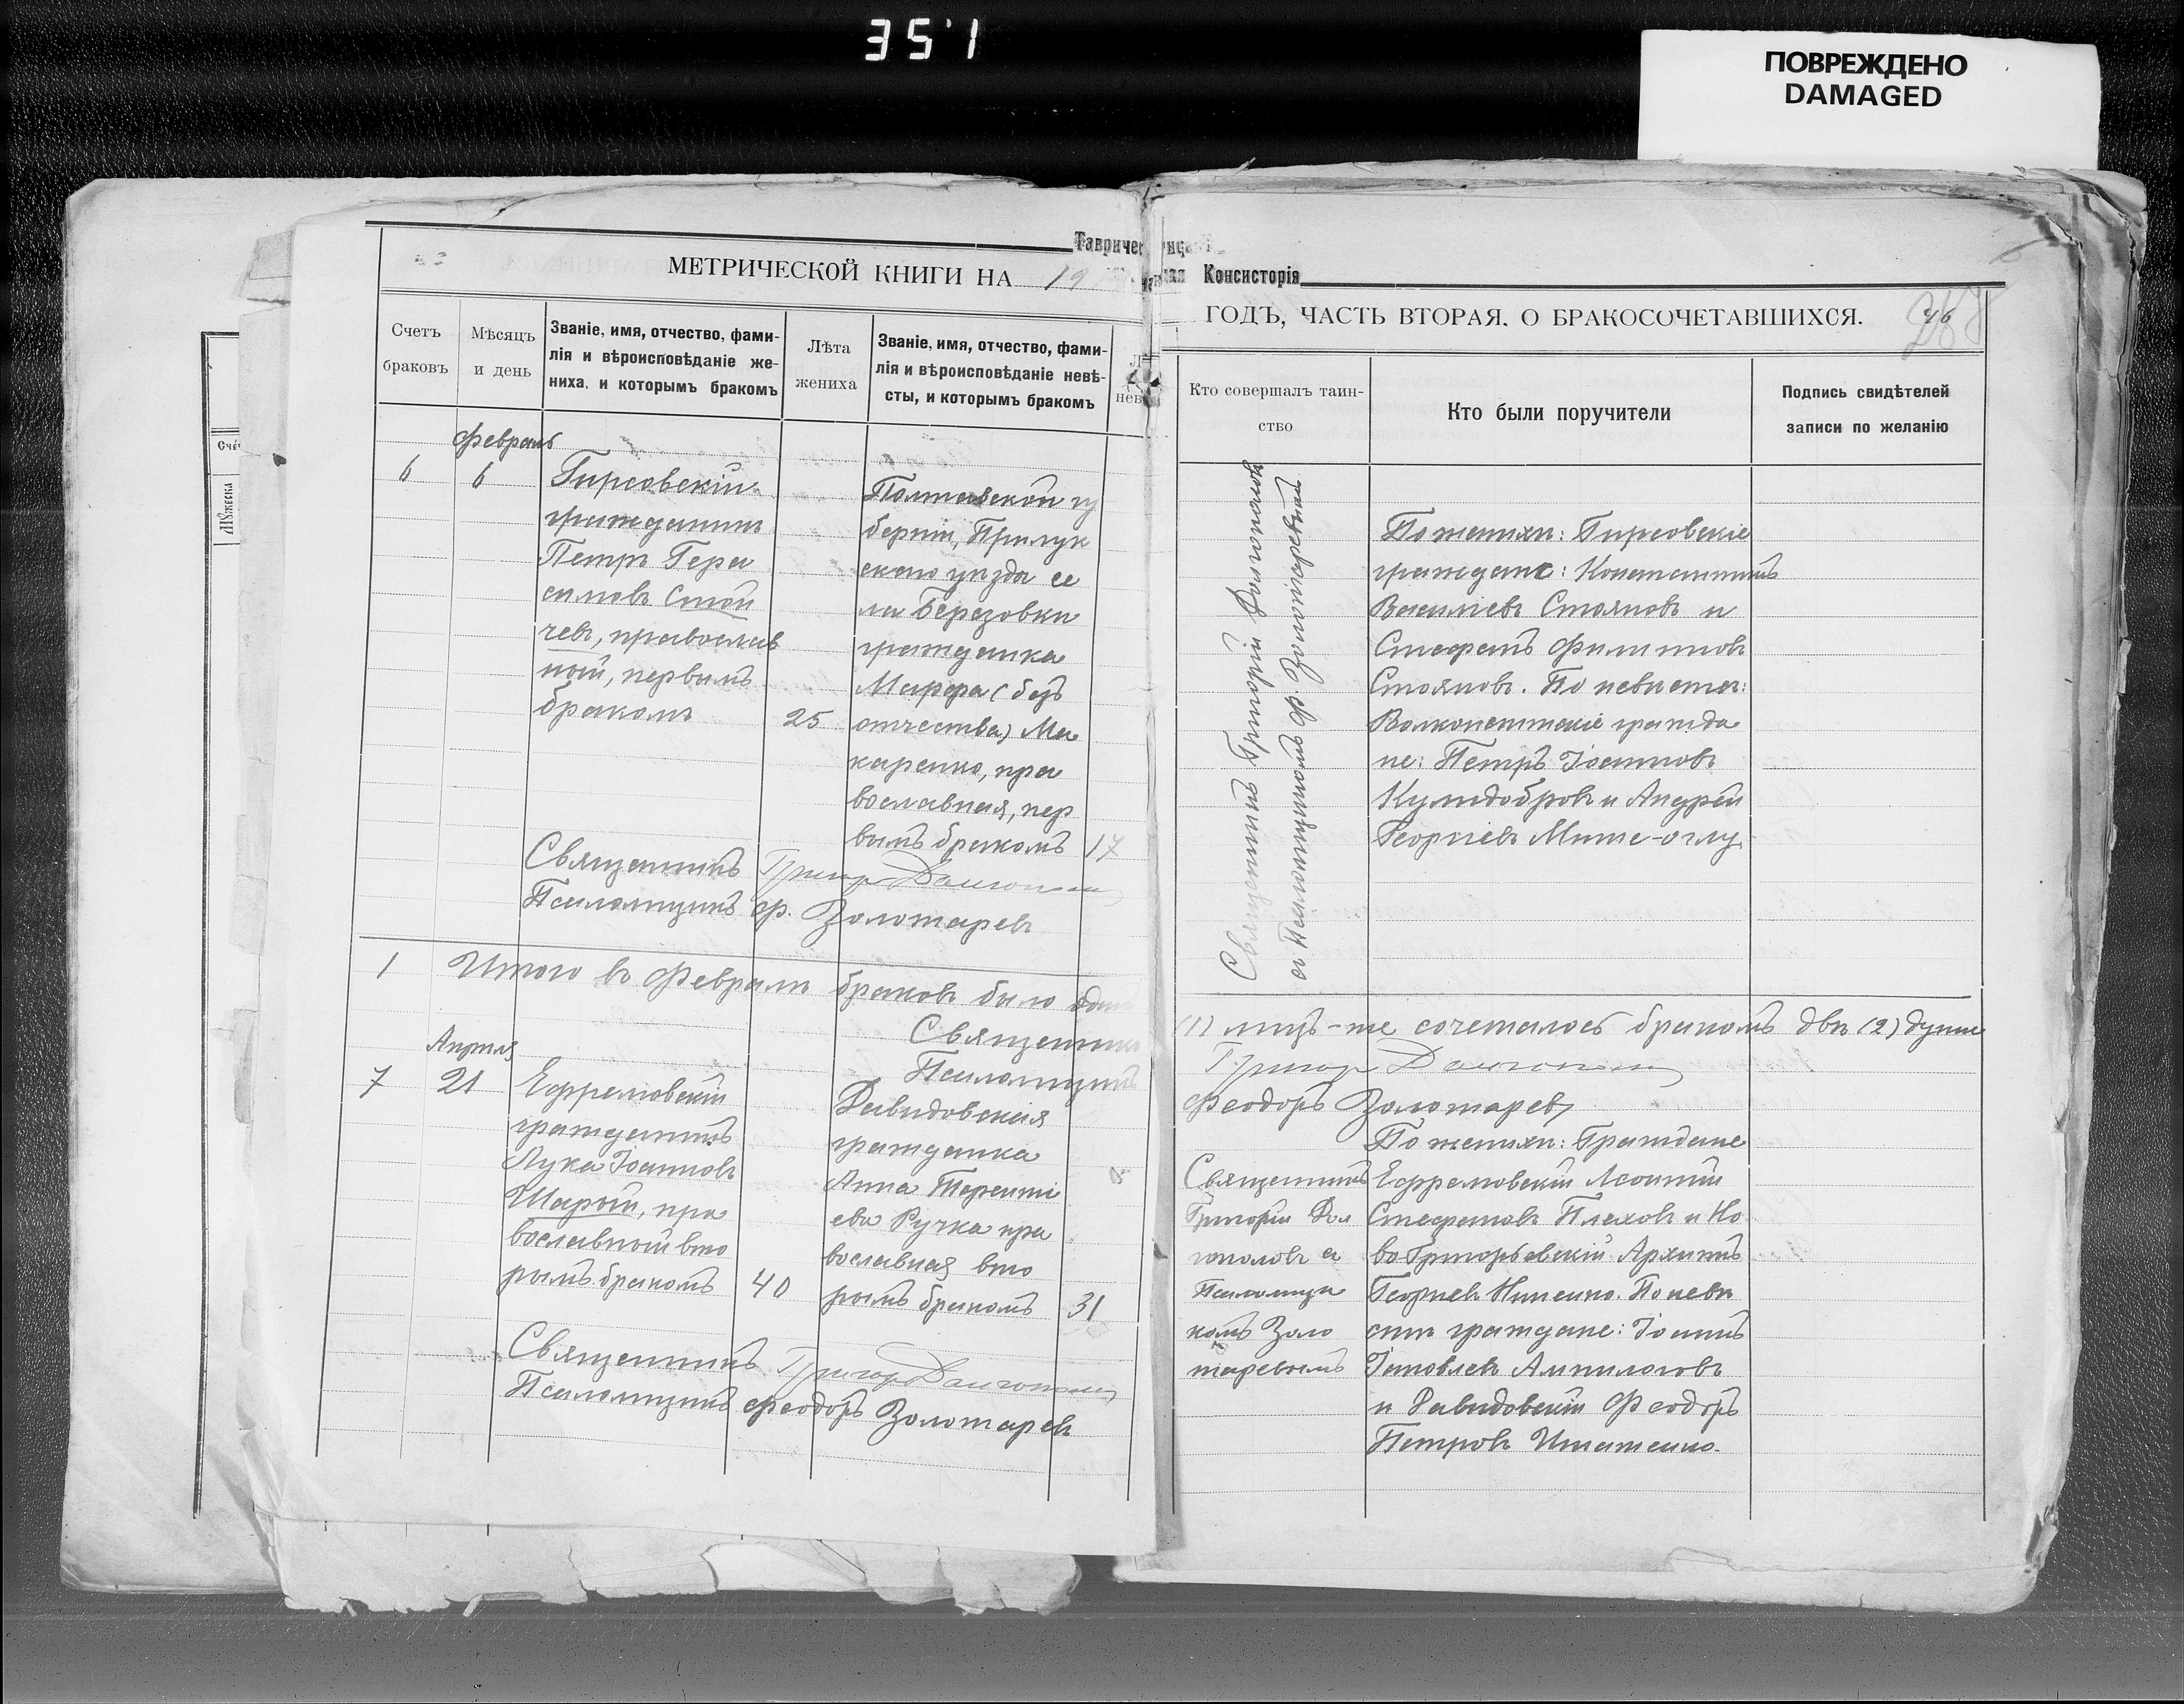 351
ПОВРЕЖДЕНО
DAMAGED
Консисторія
МЕТРИЧЕСКОЙ КНИГИ НА 19
ГОДЪ, ЧАСТЬ ВТОРАЯ, О БРАКОСОЧЕТАВШИХСЯ.
46
Счетъ
браковъ
Мѣсяцъ
и день
Званіе, имя, отчество, фами-
лія и вѣроисповѣданіе же-
ниха, и которымъ бракомъ
Лѣта
жениха
Званіе, имя, отчество, фами-
лія и вѣроисповѣданіе невѣ-
сты, и которымъ бракомъ
Кто совершалъ таин-
ство
Кто были поручители
Подпись свидѣтелей
записи по желанію
Февраль
6
6
Гирсовскій
гражданинъ
Петръ Гера
симовъ Стой
чевъ, православ
ный, первымъ
бракомъ
25
Полтавской гу
берніи, Прилук
скаго уѣзда се
ла Березовки
гражданка
Марфа (безъ
отчества) Ма
каренко, пра
вославная, пер
вымъ бракомъ
17
Священникъ Григорій Долгополовъ
съ Псаломщикомъ Ф. Золотаревымъ
По женихѣ: Гирсовскіе
граждане: Константинъ
Васильевъ Стояновъ и
Стефанъ Филипповъ
Стояновъ. По невѣстѣ:
гражда
не: Петръ Іоанновъ
и Андрей
Георгіевъ
Священникъ Григорій Долгополовъ
Псаломщикъ Ф. Золотаревъ
1
Итого въ Февралѣ браковъ было одинъ
(1) лицъ-же сочеталось бракомъ двѣ (2) души
Священникъ Григорій Долгополовъ
Псаломщикъ Феодоръ Золотаревъ
Апрѣля
7
21
Ефремовскій
гражданинъ
Лука Іоанновъ
Шарый, пра
вославный вто
рымъ бракомъ
40
Давидовская
гражданка
Анна Теренті
ева Ручка пра
вославная вто
рымъ бракомъ
31
Священникъ
Григорій Дол
гополовъ съ
Псаломщи
комъ Золо
таревымъ
По женихѣ: Граждане
Ефремовскій Леонтій
Стефановъ Плеховъ и Но
во Григорьевскій Архипъ
Георгіевъ По невѣ
стѣ граждане: Іоаннъ
Іаковлевъ Ампилоговъ
и Давидовскій Феодоръ
Петровъ Игнатенко.
Священникъ Григорій Долгополовъ
Псаломщикъ Феодоръ Золотаревъ
Счетъ
Мужеска